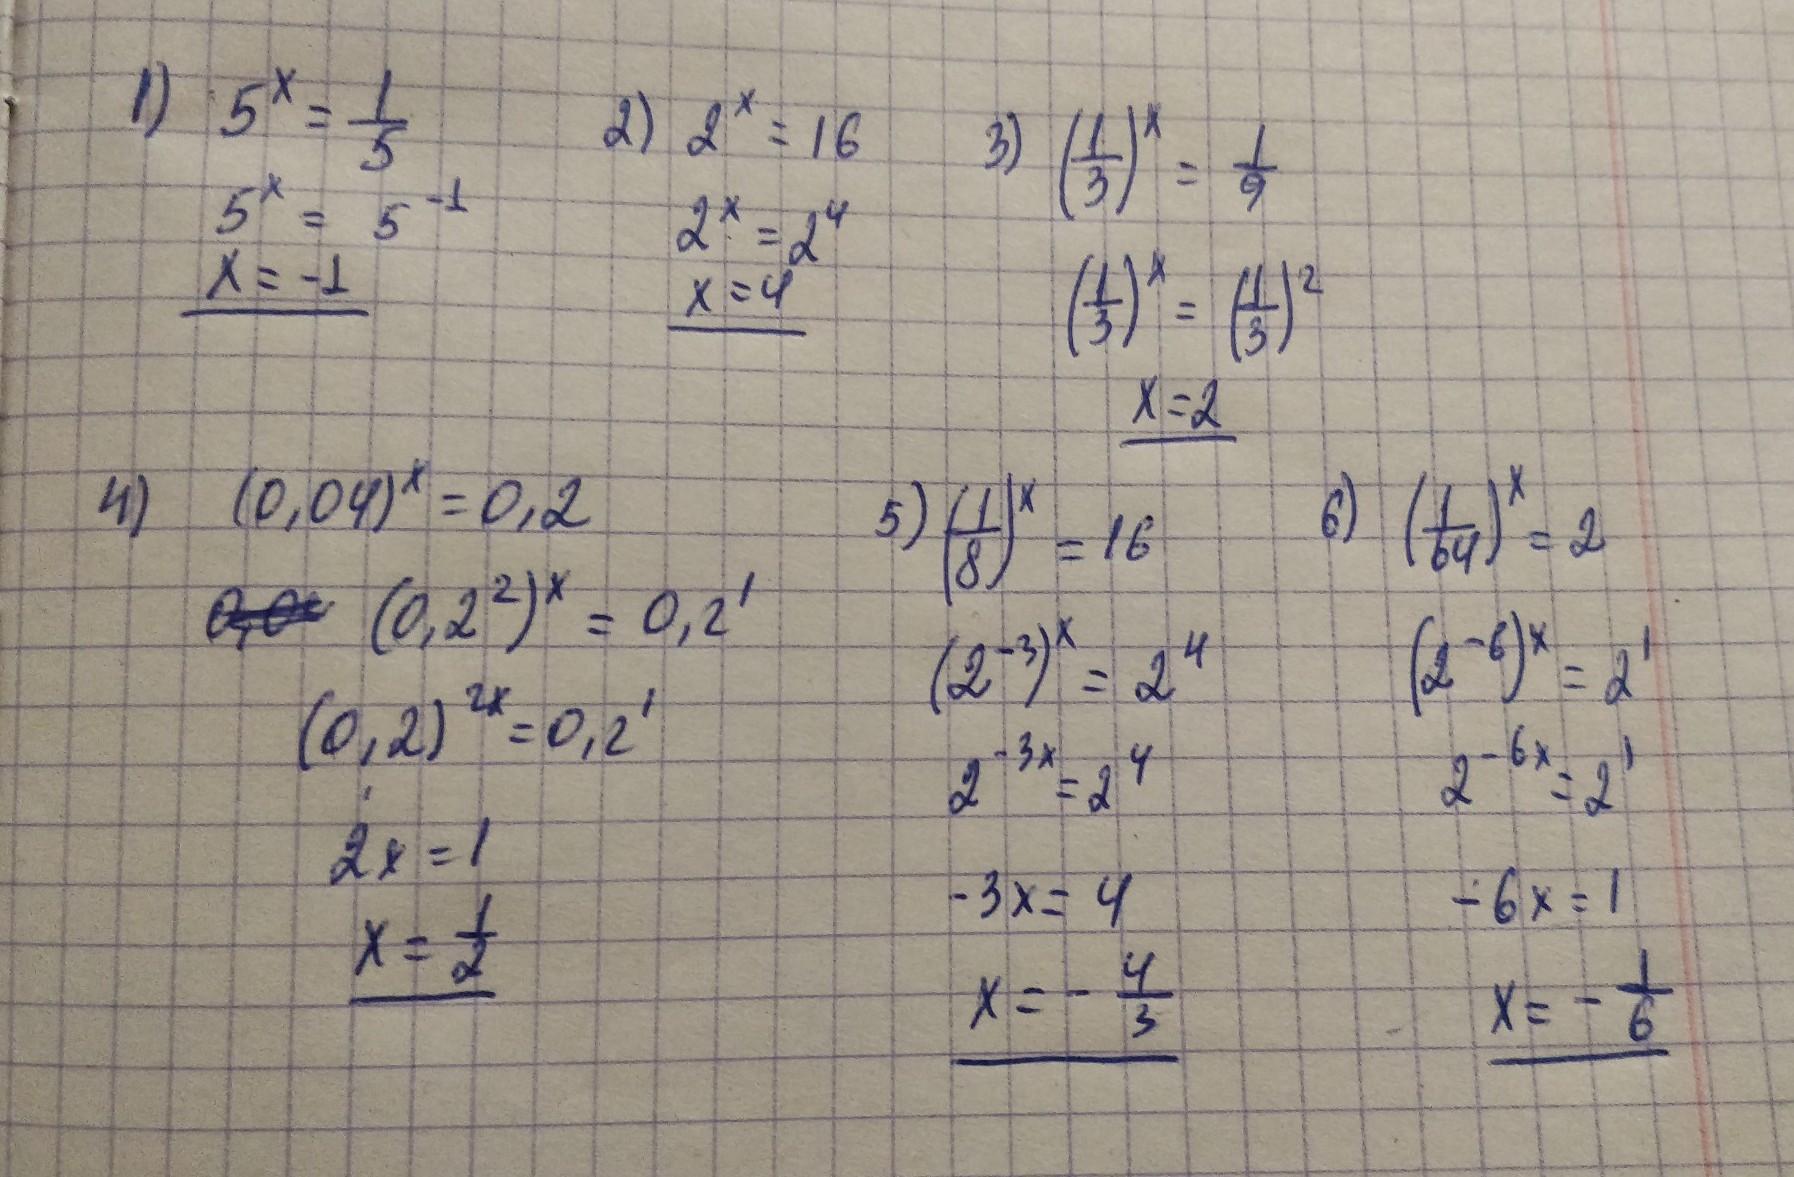 1) 5^x = 1/5
5^x = 5^-1
x = -1
2) 2^x = 16
2^x = 2^4
x = 4
3) (1/3)^x = 1/9
(1/3)^x = (1/3)^2
x = 2
4) (0,04)^x = 0,2
(0,2^2)^x = 0,2^1
(0,2)^2x = 0,2^1
2x = 1
x = 1/2
5) (1/8)^x = 16
(2^-3)^x = 2^4
2^-3x = 2^4
-3x = 4
x = - 4/3
6) (1/64)^x = 2
(2^-6)^x = 2^1
2^-6x = 2^1
-6x = 1
x = - 1/6